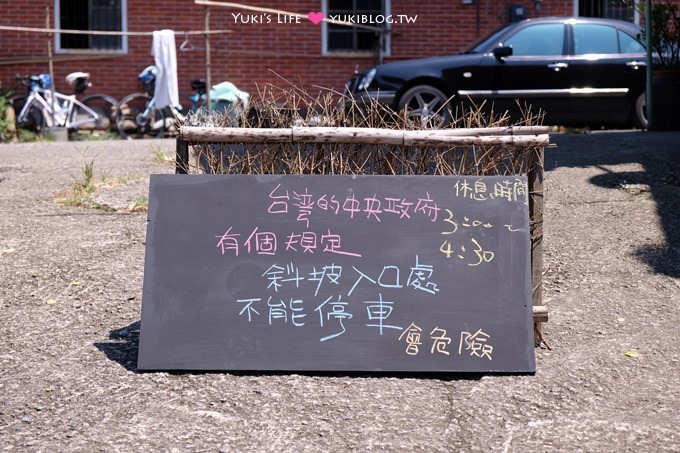 Yuki's Life ♥ yukiblog.tw
台灣的中央政府
休息時間
3:00~
4:30
有個規定
斜坡入口處
不能停車
會危險